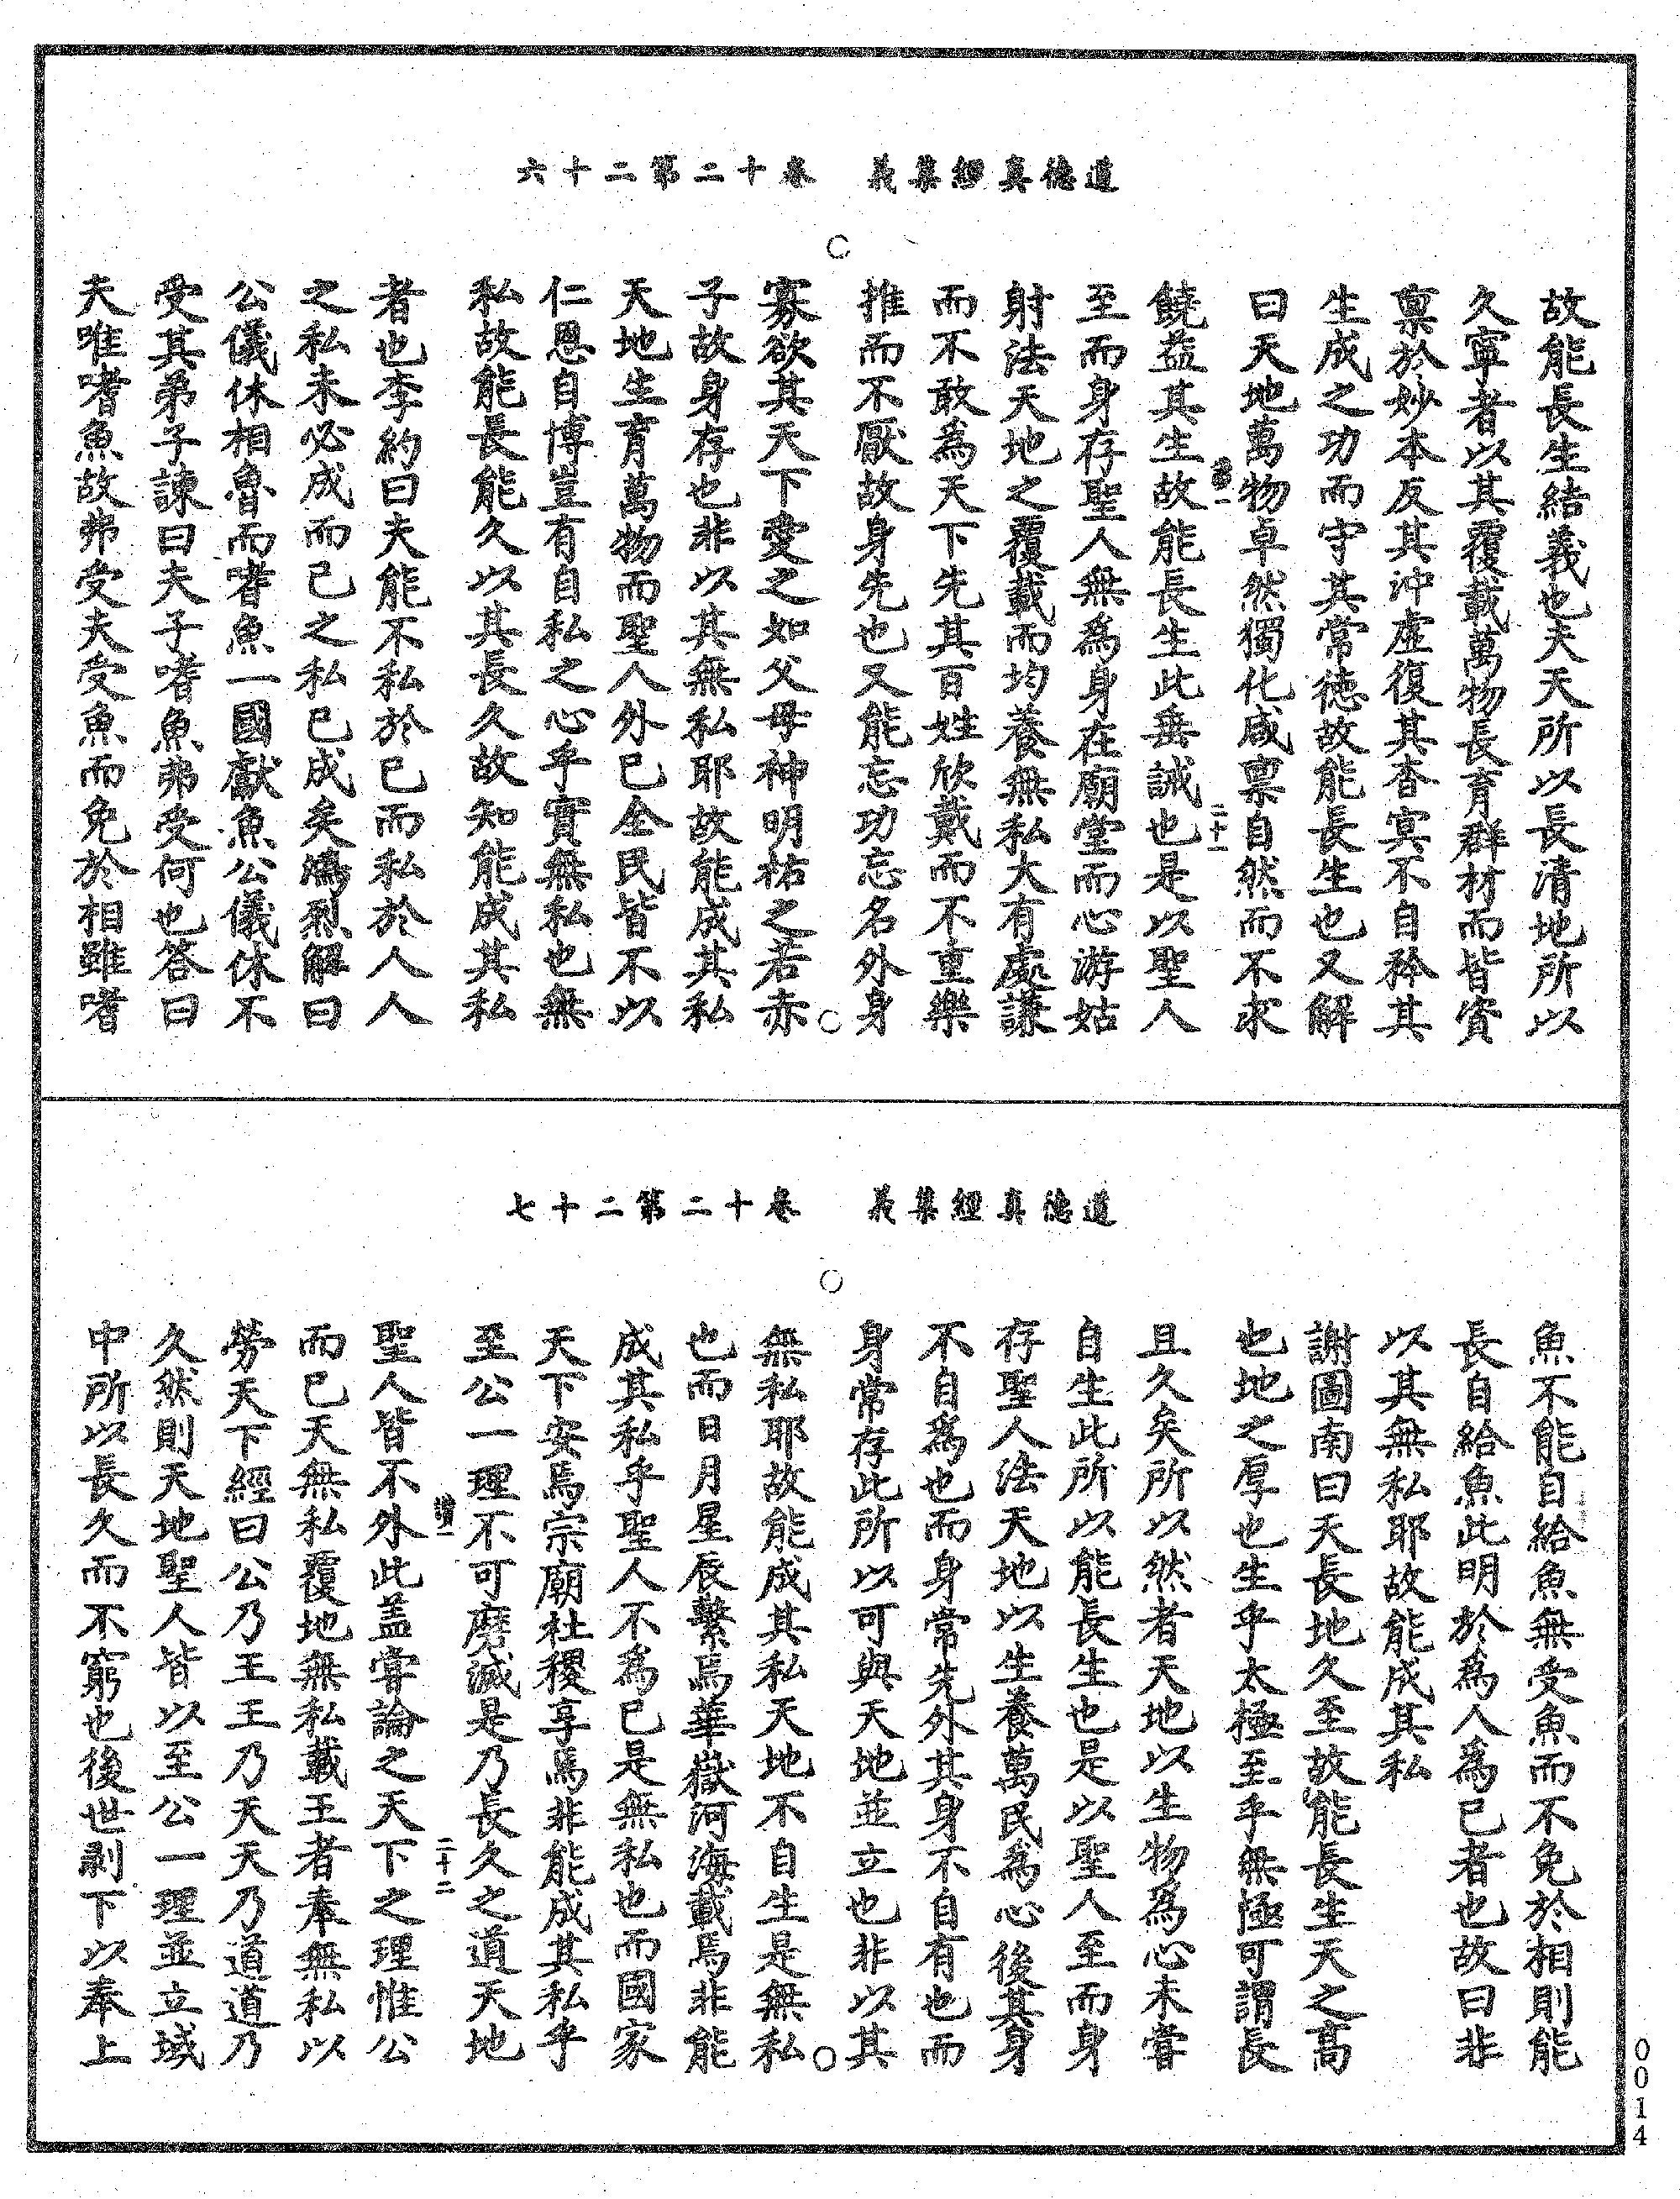 道德真經集義　卷十二第二十六
故能長生結義也夫天所以長清地所以
久寧者以其覆載萬物長育群材而皆資
禀於妙本反其沖虛復其杳冥不自矜其
生成之功而守其常德故能長生也又解
曰天地萬物卓然獨化咸禀自然而不求
饒益其生故能長生此垂誡也是以聖人
至而身存聖人無為身在廟堂而心游姑
射法天地之覆載而均養無私大有處謙
而不敢為天下先其百姓欣戴而不重樂
推而不厭故身先也又能忘功忘名外身
寡欲其天下愛之如父母神明祐之若赤
子故身存也非以其無私耶故能成其私
天地生育萬物而聖人外己全民皆不以
仁恩自博豈有自私之心乎實無私也無
私故能長能久以其長久故知能成其私
二十一
者也李約曰夫能不私於己而私於人人
之私未必成而己之私已成矣鴻烈解曰
公儀休相魯而嗜魚一國獻魚公儀休不
受其弟子諫曰夫子嗜魚弗受何也答曰
夫唯嗜魚故弗受夫受魚而免於相雖嗜
道德真經集義　卷十二第二十七
魚不能自給魚無受魚而不免於相則能
長自給魚此明於為人為己者也故曰非
以其無私耶故能成其私
謝圖南曰天長地久至故能長生天之高
也地之厚也生乎太極至乎無極可謂長
且久矣所以然者天地以生物為心未甞
自生此所以能長生也是以聖人至而身
存聖人法天地以生養萬民為心後其身
不自為也而身常先外其身不自有也而
身常存此所以可與天地並立也非以其
無私耶故能成其私天地不自生是無私
也而日月星辰繫焉華嶽河海載焉非能
成其私乎聖人不為己是無私也而國家
天下安焉宗廟社稷享焉非能成其私乎
至公一理不可磨滅是乃長久之道天地
二十二
聖人皆不外此盖甞論之天下之理惟公
而已天無私覆地無私載王者奉無私以
勞天下經曰公乃王王乃天天乃道道乃
久然則天地聖人皆以至公一理並立域
中所以長久而不窮也後世剥下以奉上
0014